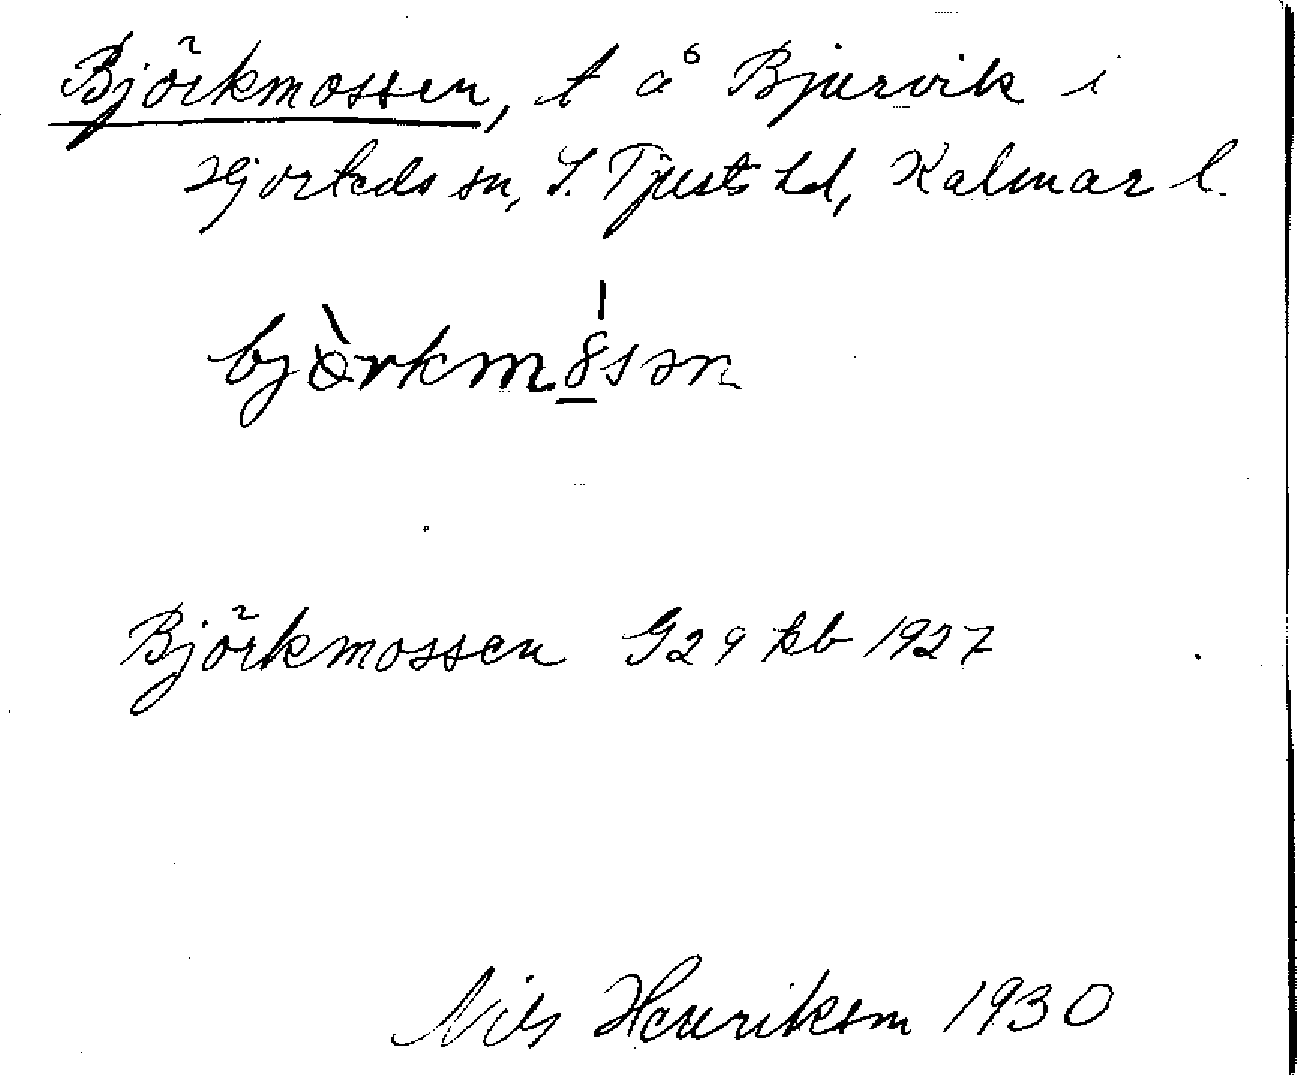 Björkmossen, t å Bjurvik i
Hjorteds sn, S. Tjusts hd, Kalmar l.
Björkmossen G29 kb 1927
Nils Henriksm 1930